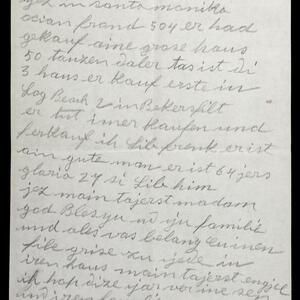 jez in santa monika
ocian frand 504 er had
gekauf aine grose haus
50 tauzen daler tas ist di
3 haus er kauf erste in
Log Beach 2 in Bekersfilt
er tut imer kaufen und
ferkauf ich libi frenk er ist
ain gute man er ist 64 jers
gloria 27 si lib him
jez main tajerst madam
god Bles yu nd ju familie
und ales was belang eu inen
file grise zu jede in
iren haus main tajerst engjel
ich hop dize jar verline sez
und iren